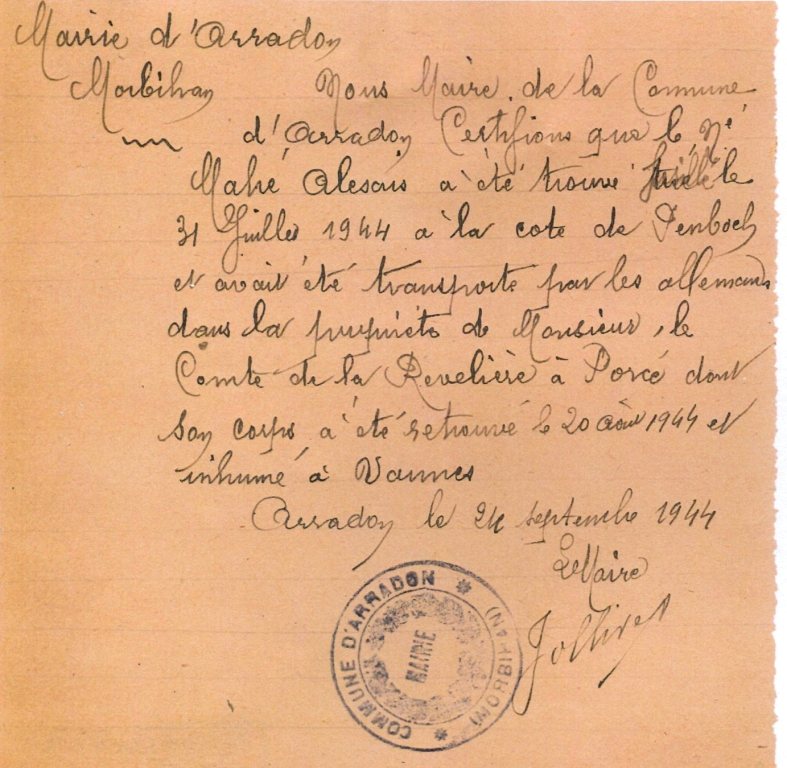 Mairie d'Arradon
Morbihan Nous Maire de la Commune
d'Arradon Certifions que le né
Mahé Alesais a été trouvé le
31 Juillet 1944 a la cote de Penboch
et avait été transporte par les allemands
dans la propriété de Monsieur le
Comte de la Revelière à Porcé dont
son corps a été retrouvé le 20 août 1944 et
inhumé à Vannes
Arradon le 24 septembre 1944
Le Maire
Jollivet
COMMUNE D'ARRADON * (MORBIHAN) *
MAIRIE